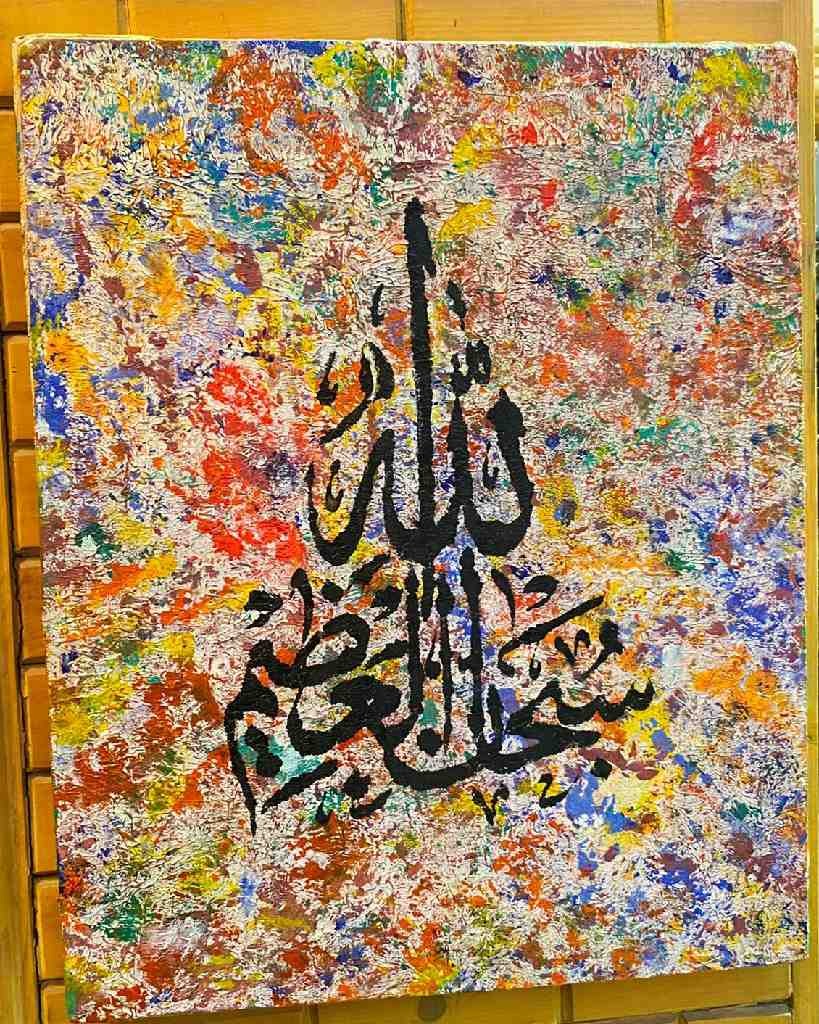 سبحان الله العظيم